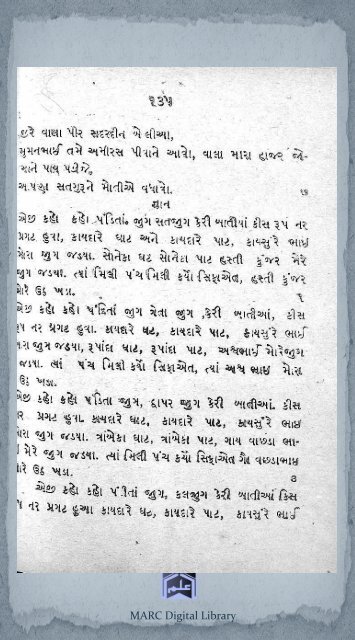 ૧૩૫
જીરે વાલા પીર સદરદીન બેલીઆ,
મુમનભાઈ તમે અમીરસ પીવાને આવો, વાલા મારા હાજર જો-
માને પાવ પડીજે,
આપણા સતગુરૂને મોતીએ વધાવો. ૧૭
જ્ઞાન
એજી કહો કહો પંડિતાં જુગ સતજુગ કેરી બાતીયાં કીસ રૂપ નર
પ્રગટ હુવા, કાયદારે ઘાટ અને કાયદારે પાટ, કાયસુંરે ભાઈ
મારા જુગ જડયા. સોનેકા ઘટ સોનેકા પાટ હસ્તી કુંજર મેરે
જુગ જડયા. ત્યાં મિલી પંચ મિલી કર્યો સિફાએત, હસ્તી કુંજર
મોરે ઉઠ ખડા. ૧
એજી કહો કહો પંડિતાં જુગ ત્રેતા જુગ કેરી બાતીઆં, કીસ
રૂપ નર પ્રગટ હુવા. કાયદારે ઘટ, કાયદારે પાટ, કાયસુંરે ભાઈ
મારા જુગ જડયા, રૂપાંદા ઘાટ, રૂપાંદા પાટ, અશ્વભાઈ મોરેજુગ
જડયા. ત્યાં પંચ મિલી કર્યો સિફાએત, ત્યાં અશ્વ ભાઇ મોરા
ઉઠ ખડા.
એજી કહો કહો પંડિતા જુગ, દ્વાપર જુગ કેરી બાતીઆં. કીસ
નર પ્રગટ હુવા. કાયદારે ઘાટ, કાયદારે પાટ, કાયસુંરે ભાઇ
મારા જુગ જડયા. ત્રાંબેકા ઘાટ, ત્રાંબેકા પાટ, ગાય વાછડા ભા-
ઈ મેરે જુગ જડયા. ત્યાં મિલી પંચ કર્યો સિફાએત ગૌ વછડાભાઇ
મારે ઉઠ ખડા. ૩
એજી કહો કહો પંડીતાં જુગ, કલજુગ કેરી બાતીઆં કિસ
રૂપ નર પ્રગટ હુઆ કાયદારે ઘટ, કાયદારે પાટ, કાયસુંરે ભાઈ
MARC Digital Library